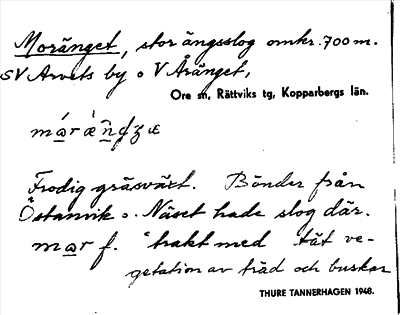 Moränget, stor ängsslog omkr. 700 m.
SV Arvets by o V Åränget,
Ore sn, Rättviks tg, Kopparbergs län.
Frodig gräsväxt. Bönder från
Östanvik o. Näset hade slog där.
mar f. "trakt med tät ve-
getation av träd och buskar
THURE TANNERHAGEN 1948.